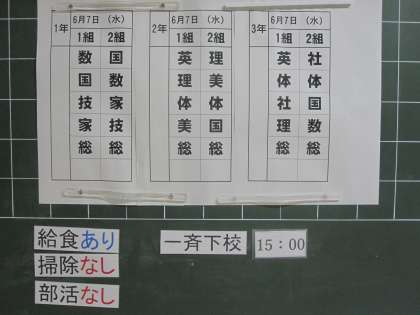 1年 6月7日 (水) 2年 6月7日 (水) 3年 6月7日 (水)
1組 2組 1組 2組 1組 2組
数 国 英 理 英 社
国 数 理 美 体 体
技 家 体 体 社 国
家 技 美 国 理 数
総 総 総 総 総 総
給食あり 一斉下校 15:00
掃除なし
部活なし